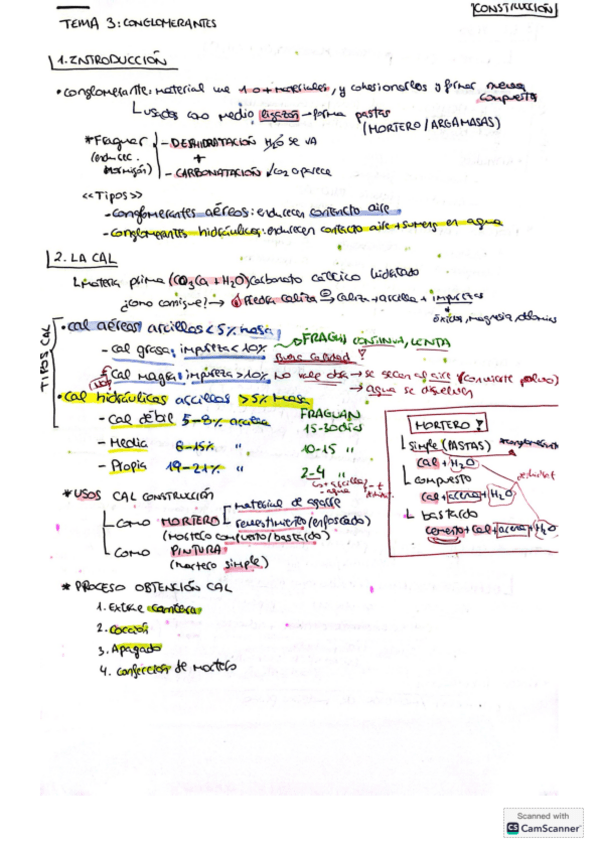 CONSTRUCCIÓN
TEMA 3: CONGLOMERANTES
1. INTRODUCCIÓN
• conglomerante: material une 1 o + materiales, y cohesionarlos y formar masa compuesta
usados como medio ligazón → forma pastas
(MORTERO / ARGAMASAS)
*Fraguar (endurec. hormigón)
- DESHIDRATACIÓN H2O SE VA
+
- CARBONATACIÓN CO2 aparece
<<Tipos>>
- conglomerantes aéreos: endurecen contacto aire
- conglomerantes hidráulicos: endurecen contacto aire + sumerg en agua
2. LA CAL
materia prima (CO3Ca + H2O) Carbonato cálcico hidratado
¿como consigue? → Piedra caliza → caliza + arcilla + impurezas
óxidos, magnesia,
TIPOS CAL
• cal aéreas arcillas < 5% masa
FRAGUA CONTINUA, LENTA
- cal grasa: impureza < 10% buena calidad
- Cal magra: impureza > 10% NO vale obra → se secan al aire (convierte polvo)
→ agua se disuelven
• cal hidráulicas arcillas > 5% masa
FRAGUAN
- Cal débil 5-8% arcilla 15-30 días
- Media 8-15% " 10-15 "
- Propia 19-21% " 2-4 "
MORTERO
simple (PASTAS)
cal + H2O
compuesto
cal + arena + H2O
bastardo
cemento + cal + arena + H2O
* USOS CAL CONSTRUCCIÓN
COMO MORTERO
material de agarre
revestimiento / enfoscado)
(mortero compuesto / bastardo)
COMO PINTURA
(mortero simple)
* PROCESO OBTENCIÓN CAL
1. Extrae cantera
2. Cocción
3. Apagado
4. Confección de mortero
Scanned with
CS CamScanner